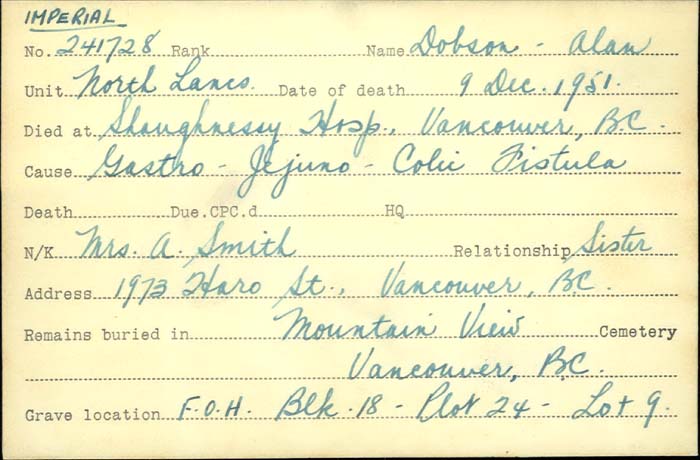 IMPERIAL
No. 241728 Rank Name Dobson - Alan
Unit North Lancs. Date of death 9 Dec. 1951.
Died at Shaughnessy Hosp., Vancouver, B.C.
Cause Gastro - Jejuno - Colic Fistula
Death Due.CPC.d HQ
N/K Mrs. A. Smith Relationship Sister
Address 1973 Haro St., Vancouver, B.C.
Remains buried in Mountain View Cemetery
Vancouver, B.C.
Grave location F.O.H. Blk. 18 - Plot 24 - Lot 9.